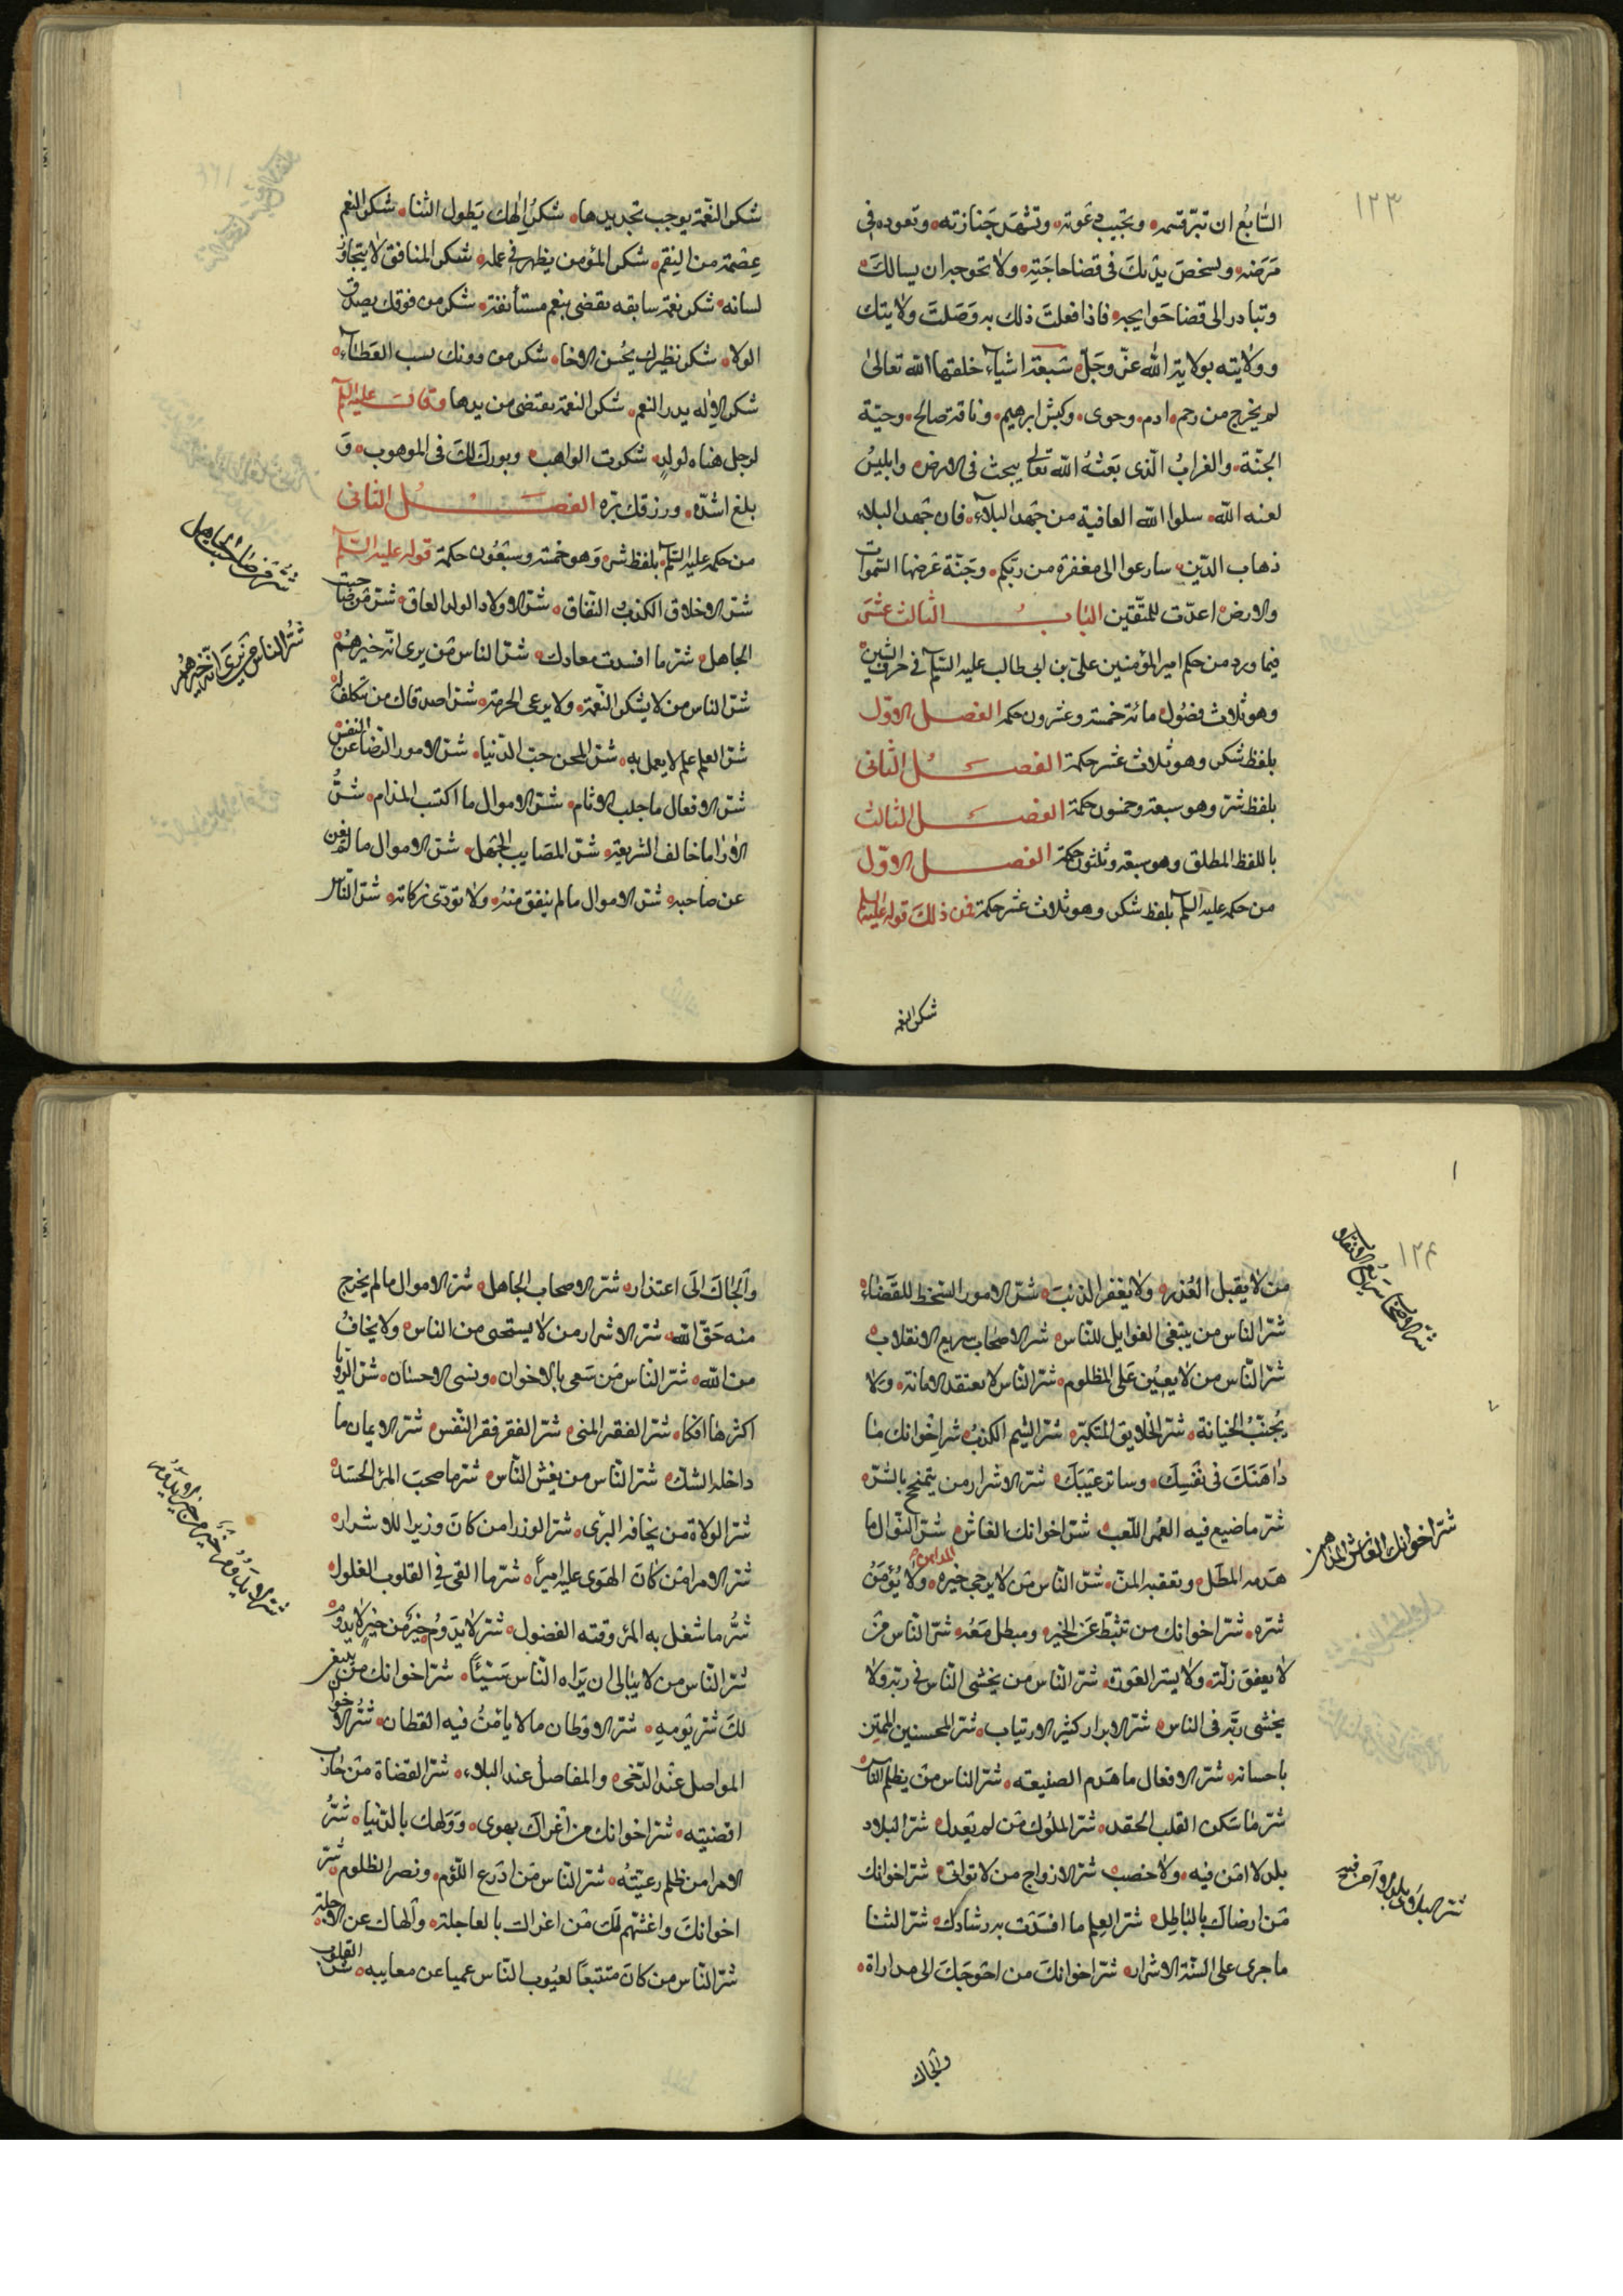 ١٢٣
السّابعُ ان تبرّ قسمه وتجيب دعوته وتشهد جنازته وتعوده في
مرضه ولسخص بدنك في قضا حاجته ولا تحوجه ان يسالك
وتبادر الى قضا حوايجه فاذا فعلت ذلك به وصلت ولايتك
وولايته بولاية الله عزّ وجلّ سبعة اشياء خلقها الله تعالى
لم يخرج من رحم ادم وحوى وكبش ابرهيم وناقة صالح وحيّة
الجنّة والغرابُ الّذى بعثهُ الله تعالى يبحث فى الارض وابليسُ
لعنه الله سلوا الله العافية من جهد البلاء فان جهد البلاء
ذهاب الدّين سارعوا الى مغفرة من ربّكم وجنّة عرضها السّموات
والارض اعدّت للمتّقين البابُ الثالث عشر
فيما ورد من حكم امير المؤمنين علىّ بن ابى طالب عليه السّلم في حرف الشين
وهو ثلاث فصُول مائة خمسة وعشرون حكمه الفصل الاوّل
بلفظ شكر وهو ثلاث عشر حكمة الفصل الثانى
بلفظ شرّ وهو سبعة وخمسون حكمة الفصل الثالث
باللفظ المطلق وهو سبعة وثلثون حكمة الفصل الاوّل
من حكمه عليه السلم بلفظ شكر وهو ثلاث عشر حكمة فمن ذلك قوله عليه السلم
شكر النعمه
شكر النّعمة يوجب تجديدها شكرُ الٰهك بطول الثنا شكر النعم
عصمة من النقم شكر المؤمن يظهر في عمله شكر المنافق لا يتجاوز
لسانه شكر نعمة سابقه تقضى بنعم مستأنفة شكر من فوقك بصدق
الولا شكر نظيرك بحُسن الاخا شكر من دونك بسبب العطاء
شكر الاله يدر النعم شكر النعمة يقتضى من يدها وقال عليه السلم
لرجل هناه لولدٍ شكرت الواهب وبورك لك فى الموهوب و
بلغ اشدّه ورزقك برّه الفصل الثانى
من حكمه عليه السّلم بلفظ شر وهو خمسة وسبعُون حكمة قوله عليه السّلم
شرّ الاخلاق الكذب النّفاق شرّ الاولاد الولد العاق شرّ مَن صَاحبت
الجاهل شرّ ما افسدت معادك شرّ الناس من يرى انّه خيرهم
شرّ الناس من لا يشكر النّعمة ولا يرعى الحرمة شرّ اصدقاك من تتكلف له
شرّ العلم علم لا يعمل به شرّ المحن حبّ الدّنيا شرّ الامور الرّضا عن النفس
شرّ الافعال ما جلب الاثام شرّ الاموال ما اكتسب المذام شرُّ
الاراٰ ما خالف الشريعة شرّ المصايب الجهل شرّ الاموال ما لم يغن
عن صاحبه شرّ الاموال ما لم ينفق منه ولا تودّى زكاته شرّ النّاس
شرّ الناس من يرى انّه خيرهُم
١٢٤
من لا يقبل العُذر ولا يغفر الذنب شرّ الامور السّخط للقضاء
شرّ الناس من يبتغى الغوايل للنّاس شر الاصحاب سريع الانقلاب
شرّ النّاس من لا يعين على المظلوم شرّ النّاس لا يعتقد الامانة ولا
يُجنّبُ الخيانة شرّ الخلايق المتكبّر شرّ الشيم الكذب شر اخوانك من
داهنك فى نفسك وساتر عيبك شرّ الاشرار من يتمنح بالشرّ
شرّ ما ضيع فيه العُمر اللّعب شرّ اخوانك الغاش شرّ النوال ما
المداهن
هدمه المطل وتعقبه المنّ شرّ النّاس من لا يرجى خيره ولا يُؤمنُ
شرّه شرّ اخوانك من تثبّط عن الخير ومبطل معه شرّ النّاس من
لا يعفو زلّة ولا يستر العورة شرّ النّاس من يخشى النّاس فى ربّه ولا
يخشى ربّه فى الناس شرّ الابرار كثير الارتياب شرّ المحسنين الممتن
باحسانه شرّ الافعال ما هدم الصنيعه شرّ الناس من يظلم الناس
شرّ ما سكن القلب الحقد شرّ الملُوك من لم يعدل شرّ البلاد
بلد لا امن فيه ولا خصب شرّ الازواج من لا تواتى شرّ اخوانك
من ارضاك بالباطل شرّ العلم ما افسدت به رشادك شرّ الثنا
ما جرى على السنة الاشرار شرّ اخوانك من احوجك الى مداراة
شرّ الاصحاب سريع الانقلاب
شرّ اخوانك الغاش المداهن
والجاك
والجاك الى اعتذار شرّ الاصحاب الجاهل شرّ الاموال ما لم يخرج
منه حقّ الله شرّ الاشرار من لا يستحى من الناس ولا يخافُ
من الله شرّ النّاس من سعى بالاخوان ونسى الاحسان شرّ الرّوايا
اكثرها افكا شرّ الفقر المنى شرّ الفقر فقر النّفس شرّ الايمان ما
داخله الشكّ شرّ النّاس من يغش النّاس شرّ ما صحب المرء الحسد
شرّ الولاة من يخافه البرى شرّ الوزرا من كان وزيرا للاشرار
شرّ الامرا من كان الهوى عليه اميراً شرّ ما القى في القلوب الغلول
شرُّ ما شغل به المرء وقته الفضول شرّ لا يدومُ خيرٌ من خيرٍ لا يدوم
شرّ النّاس من لا يبالى ان يراه النّاس مسيئاً شرّ اخوانك من يبتغى
لك شرّ يومه شرّ الاوطان ما لا يأمنُ فيه القطان شرّ الاخوان
المواصل عند الرّخى والمفاصل عند البلاء شرّ القضاة من جارت
اقضيته شرّ اخوانك من اغراك بهوى وولهك بالدّنيا شرُّ
الامرا من ظلم رعيّته شرّ النّاس من ادّرع اللّؤم ونصر الظلوم شرّ
اخوانك واغشّهم لك من اغراك بالعاجلة والهاك عن الاجلة
شرّ النّاس من كان متتبعاً لعيُوب النّاس عميا عن معايبه شرّ القلوب